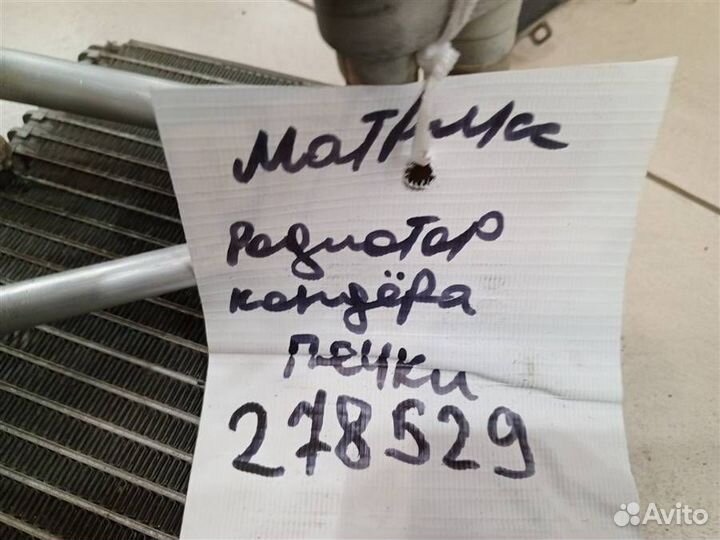 Матрикс
Радиатор
кондёра
печки
278529
Avito